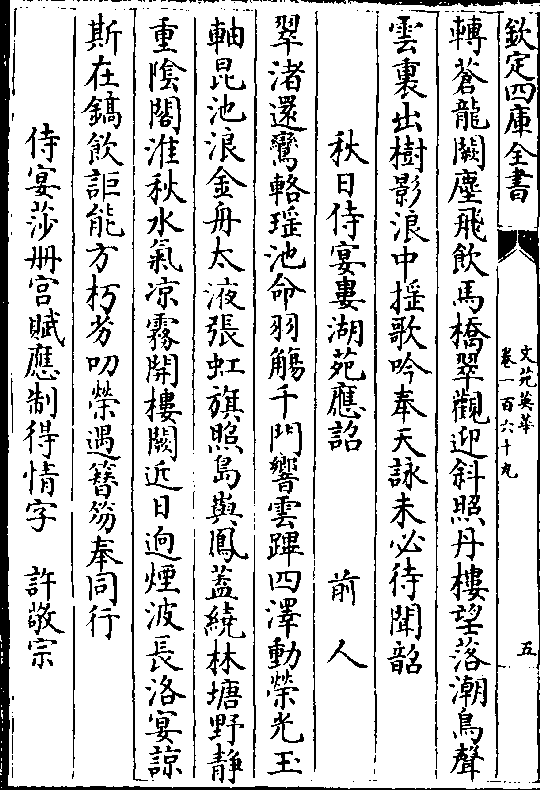 欽定四庫全書
文苑英華
卷一百六十九
五
轉蒼龍闕塵飛飲馬橋翠觀迎斜照丹樓望落潮鳥聲
雲裏出樹影浪中揺歌吟奉天詠未必待聞韶
秋日侍宴婁湖苑應詔 前人
翠渚還鸞輅瑶池命羽觴千門響雲蹕四澤動榮光玉
軸昆池浪金舟太液張虹旗照島嶼鳳葢繞林塘野靜
重陰闊淮秋水氣凉霧開樓闕近日逈煙波長洛宴諒
斯在鎬飲詎能方朽劣叨榮遇簪笏奉同行
侍宴莎册宫賦應制得情字 許敬宗